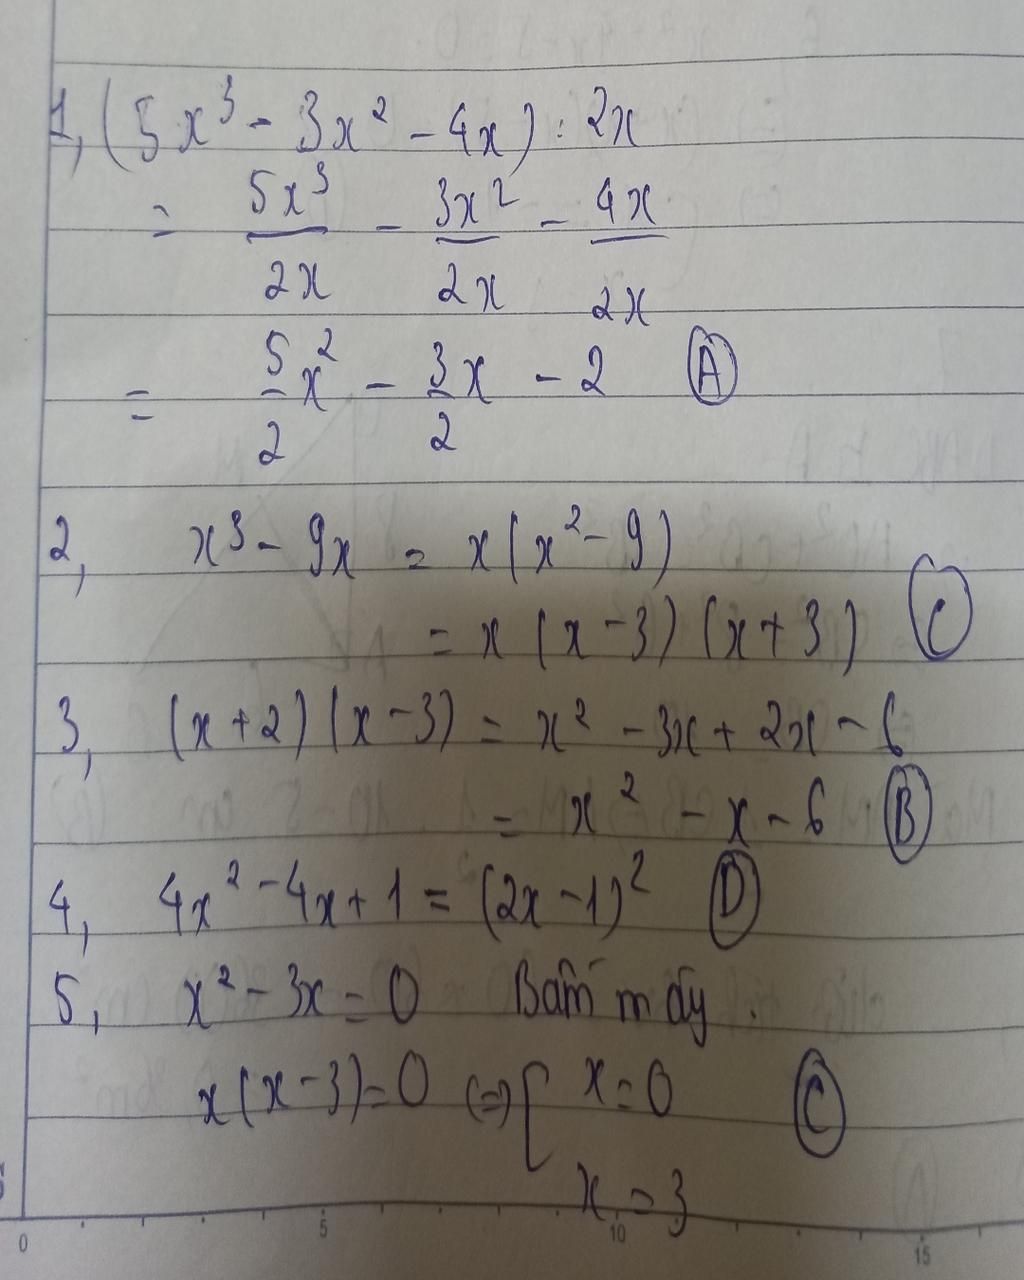 1, (5x³ - 3x² - 4x) : 2x
= 5x³/2x - 3x²/2x - 4x/2x
= 5/2 x² - 3/2 x - 2 Ⓐ
2, x³ - 9x = x(x² - 9)
= x(x - 3)(x + 3) Ⓒ
3, (x + 2)(x - 3) = x² - 3x + 2x - 6
= x² - x - 6 Ⓑ
4, 4x² - 4x + 1 = (2x - 1)² Ⓓ
5, x² - 3x = 0 Bấm máy.
x(x - 3) = 0 (=) [ x = 0 Ⓒ
x = 3
0 5 10 15